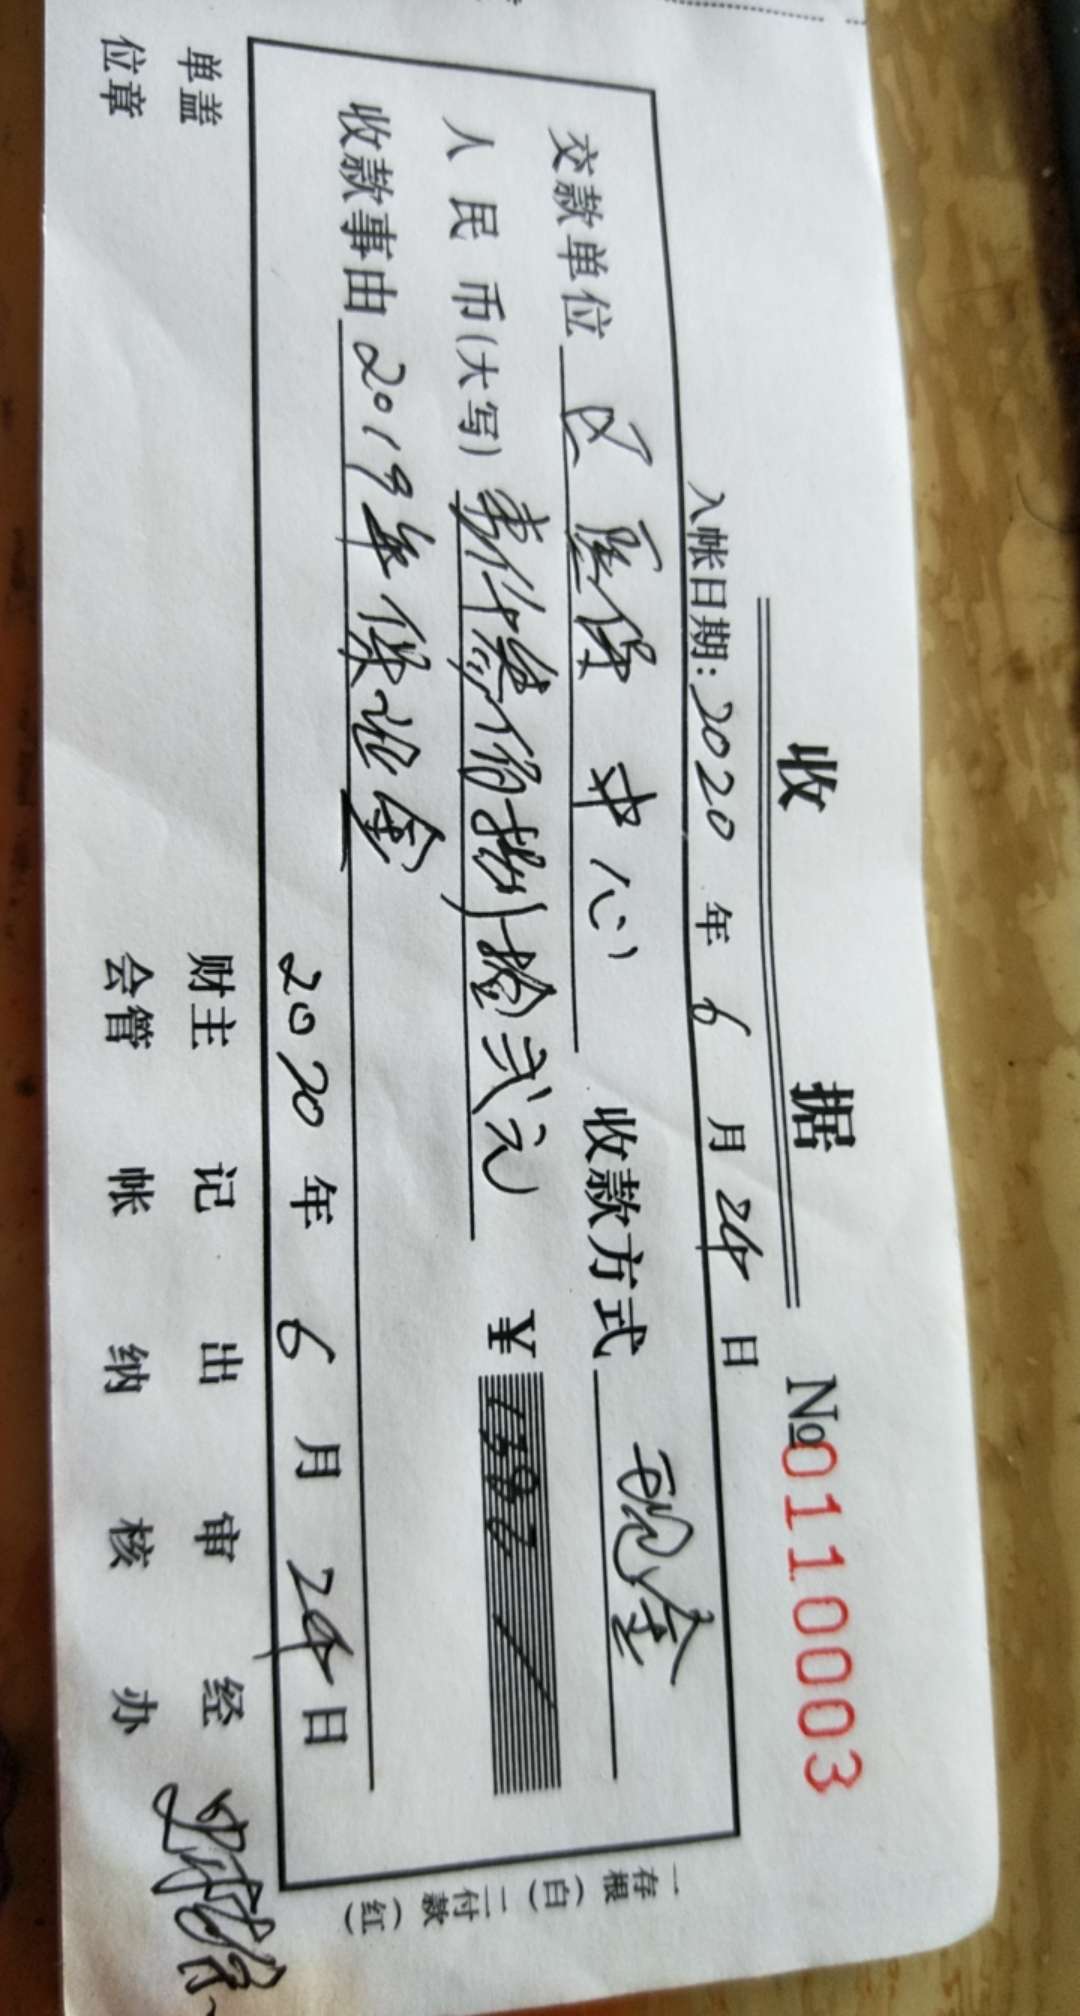 收 据 №0110003
入帐日期: 2020 年 6 月 24 日
交款单位 区医保中心 收款方式 现金
人民币(大写) 壹仟叁佰捌拾弍元 ¥ 1382
收款事由 2019年保证金
2020 年 6 月 24 日
一存根(白) 二付款(红)
单盖 财主 记 出 审 经
位章 会管 帐 纳 核 办